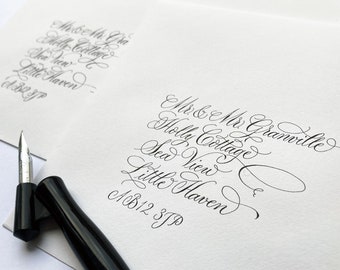 Mr & Mr Gran
Holly Cottage
Sea View
Little Haven
AB12 3JP
Mr & Mr Granville
Holly Cottage
Sea View
Little Haven
AB12 3JP